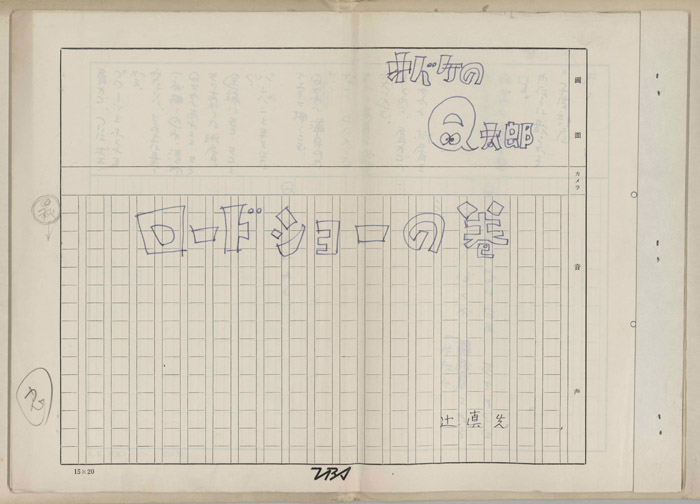 オバケの
Q太郎
ロードショーの巻
辻真先
画面
カメラ
音声
15×20
TBS